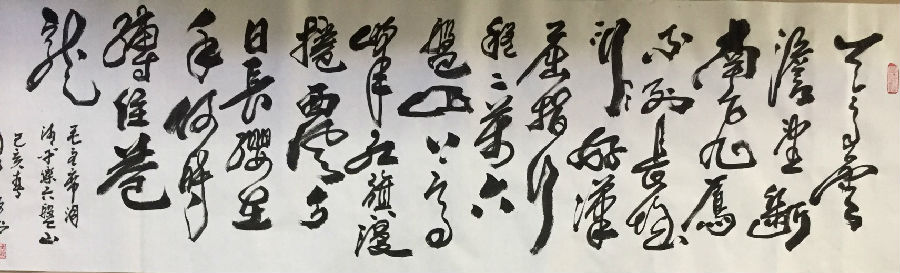 天高雲
澹望斷
南飛雁
不到長城
非好漢
屈指行
程二萬六
盤山上高
峰紅旗漫
捲西風今
日長纓在
手何時
縛住蒼
龍
毛主席詞
清平樂六盤山
己亥春